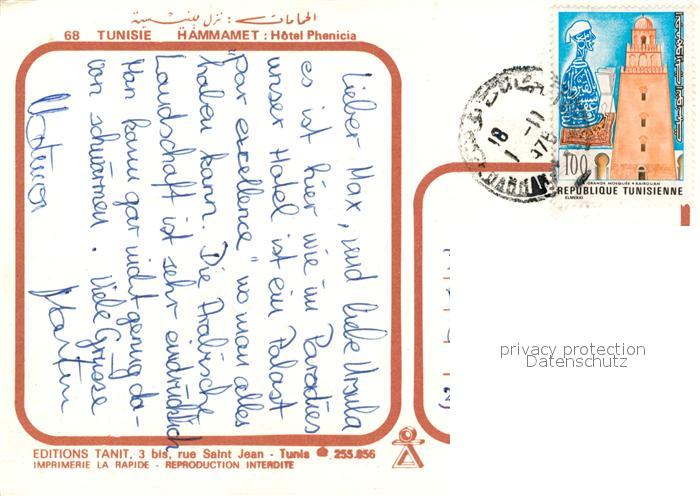 الحمامات : نزل فينيسية
68 TUNISIE HAMMAMET : Hôtel Phenicia
Lieber Max, und liebe Ursula
es ist hier wie im Paradies
unser Hotel ist ein Palast
"par excellence" wo man alles
haben kann. Die Arabische
Landschaft ist sehr eindrücklich
Man kann gar nicht genug da-
von schwärmen. Viele Grüsse
Martin
18
1 -11
HAMMAM
الجمهورية التونسية
100
GRANDE MOSQUÉE • KAIROUAN
REPUBLIQUE TUNISIENNE
ELMEKKI
privacy protection
Datenschutz
EDITIONS TANIT, 3 bis, rue Saint Jean - Tunis ☎ 255.856
IMPRIMERIE LA RAPIDE - REPRODUCTION INTERDITE